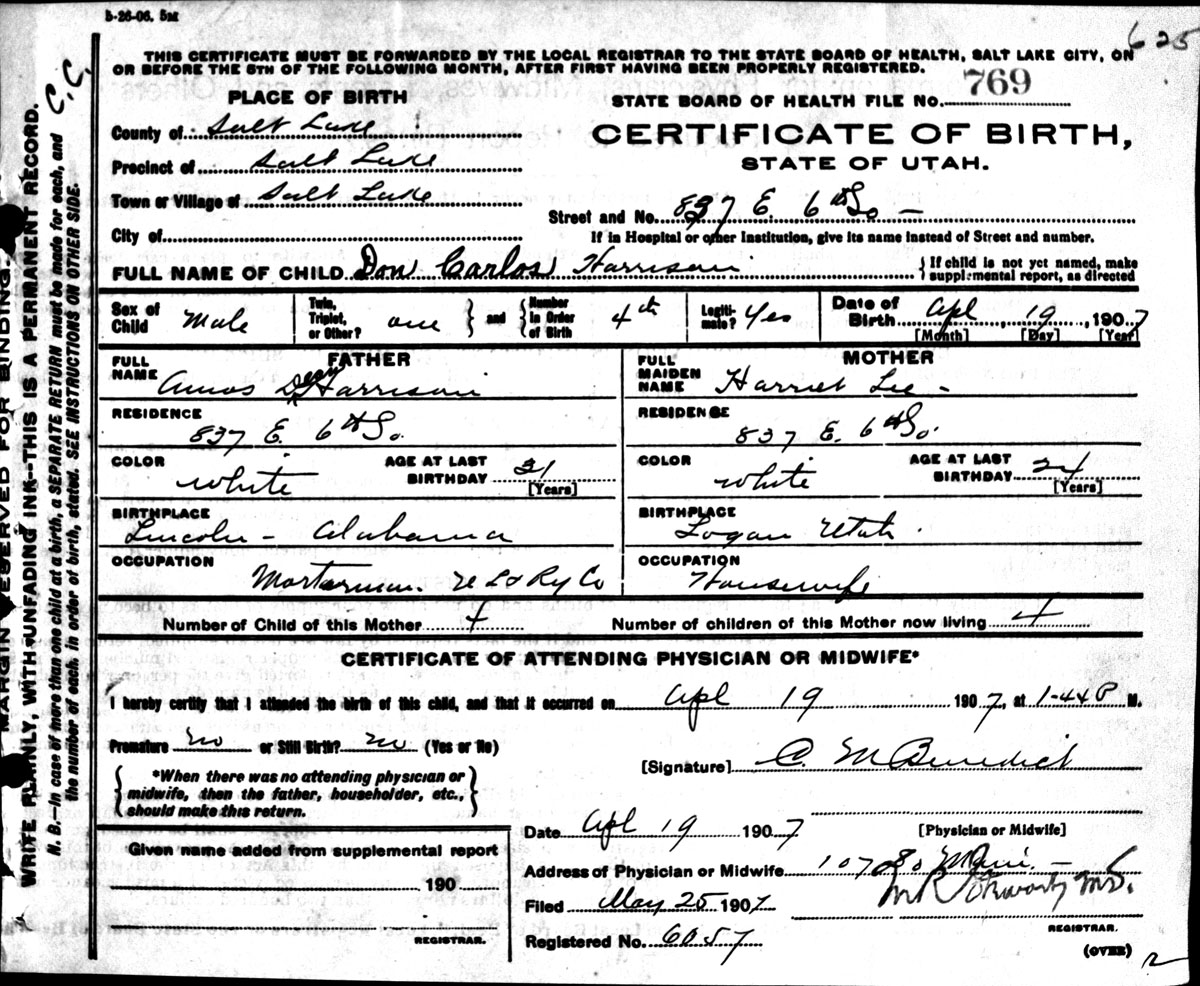 5-26-06. 5M
625
THIS CERTIFICATE MUST BE FORWARDED BY THE LOCAL REGISTRAR TO THE STATE BOARD OF HEALTH, SALT LAKE CITY, ON
OR BEFORE THE 5TH OF THE FOLLOWING MONTH, AFTER FIRST HAVING BEEN PROPERLY REGISTERED.
C.C.
PLACE OF BIRTH
STATE BOARD OF HEALTH FILE NO. 769
County of Salt Lake
CERTIFICATE OF BIRTH,
STATE OF UTAH.
Precinct of Salt Lake
Town or Village of Salt Lake
Street and No. 837 E. 6th So -
City of
If in Hospital or other Institution, give its name instead of Street and number.
FULL NAME OF CHILD Don Carlos Harrison
{ If child is not yet named, make
supplemental report, as directed
Sex of Child Male
Twin, Triplet, or Other? one } and { Number in Order of Birth 4th
Legitimate? Yes
Date of Birth Apl 19, 1907
[Month] [Day] [Year]
FATHER
FULL NAME Amos Harrison
RESIDENCE 837 E. 6th So.
COLOR White
AGE AT LAST BIRTHDAY 31 [Years]
BIRTHPLACE Lincoln - Alabama
OCCUPATION Motorman. U L & Ry Co
MOTHER
FULL MAIDEN NAME Harriet Lee -
RESIDENCE 837 E. 6th So.
COLOR White
AGE AT LAST BIRTHDAY 24 [Years]
BIRTHPLACE Logan Utah.
OCCUPATION Housewife
Number of Child of this Mother 4
Number of children of this Mother now living 4
CERTIFICATE OF ATTENDING PHYSICIAN OR MIDWIFE*
I hereby certify that I attended the birth of this child, and that it occurred on Apl 19 1907, at 1-44 P M.
Premature no or Still Birth? no (Yes or No)
[Signature] C. M Benedict
{ *When there was no attending physician or
midwife, then the father, householder, etc.,
should make this return. }
Date Apl 19 1907
[Physician or Midwife]
Given name added from supplemental report
190
REGISTRAR.
Address of Physician or Midwife 107 So Main. -
Filed May 25 1907
REGISTRAR.
Registered No. 6057
(OVER)
MARGIN RESERVED FOR BINDING.
WRITE PLAINLY, WITH UNFADING INK--THIS IS A PERMANENT RECORD.
N. B.--In case of more than one child at a birth, a SEPARATE RETURN must be made for each, and
the number of each, in order of birth, stated. SEE INSTRUCTIONS ON OTHER SIDE.